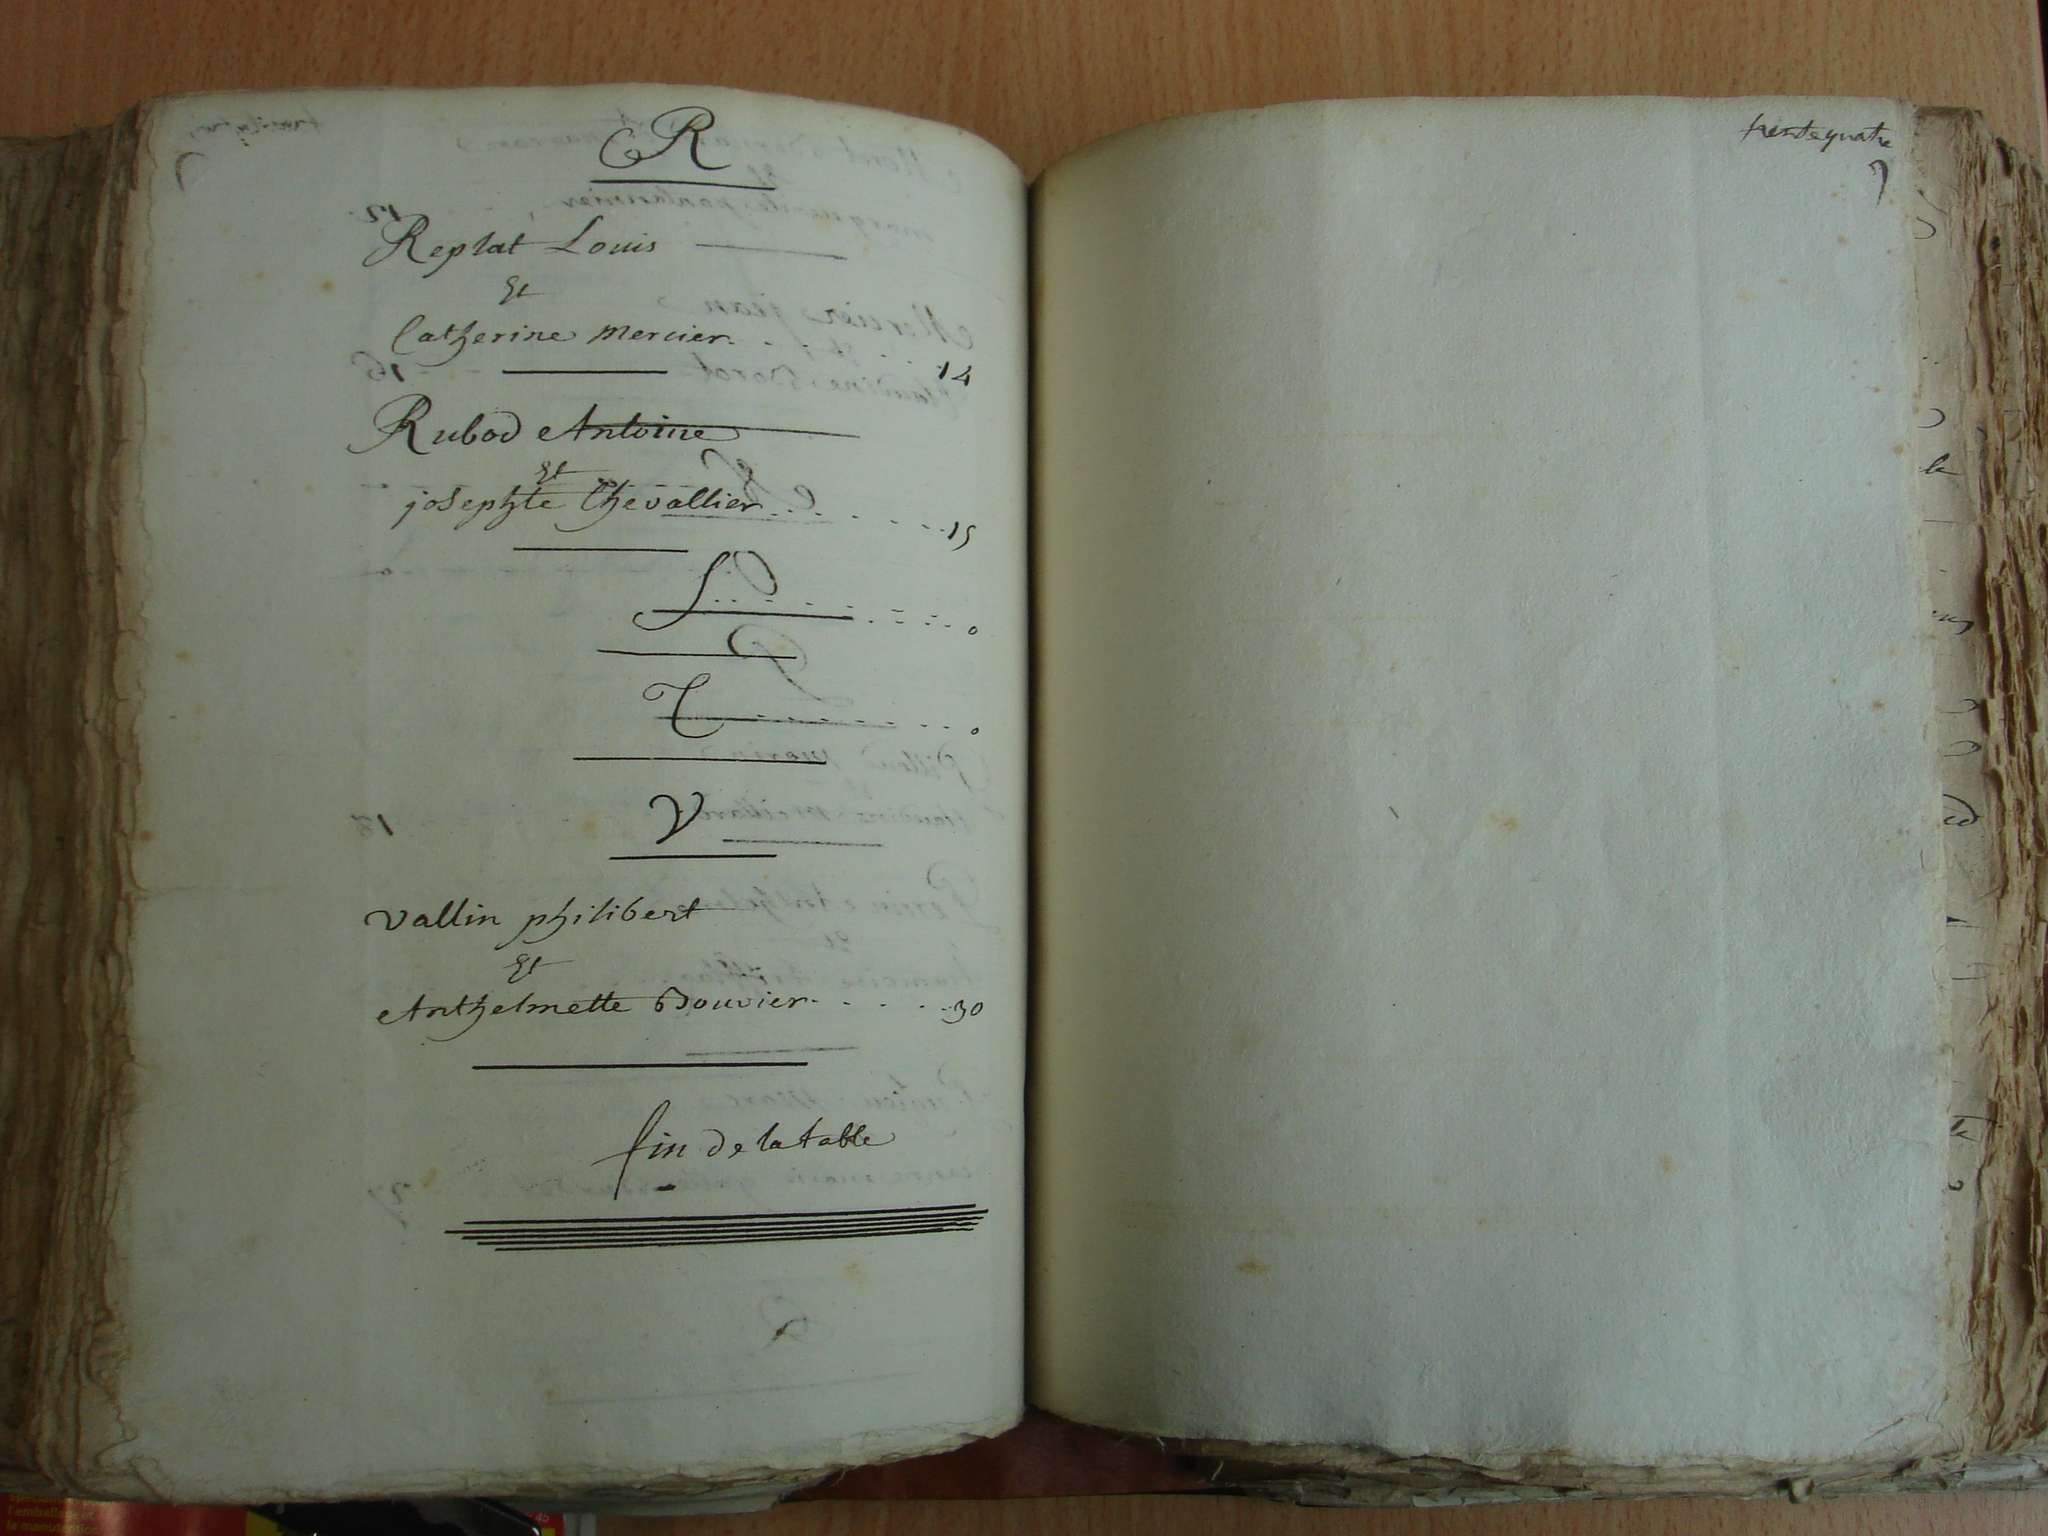 R
Replat Louis
Et
Catherine mercier. . 14
Rubod Antoine
Et
josephte Chevallier . . . . . . . 15
S . . . . . . . . . . 0
T . . . . . . . . 0
V
vallin philibert
Et
Anthelmette Bouvier . . . . . 30
fin de la table
trente quatre